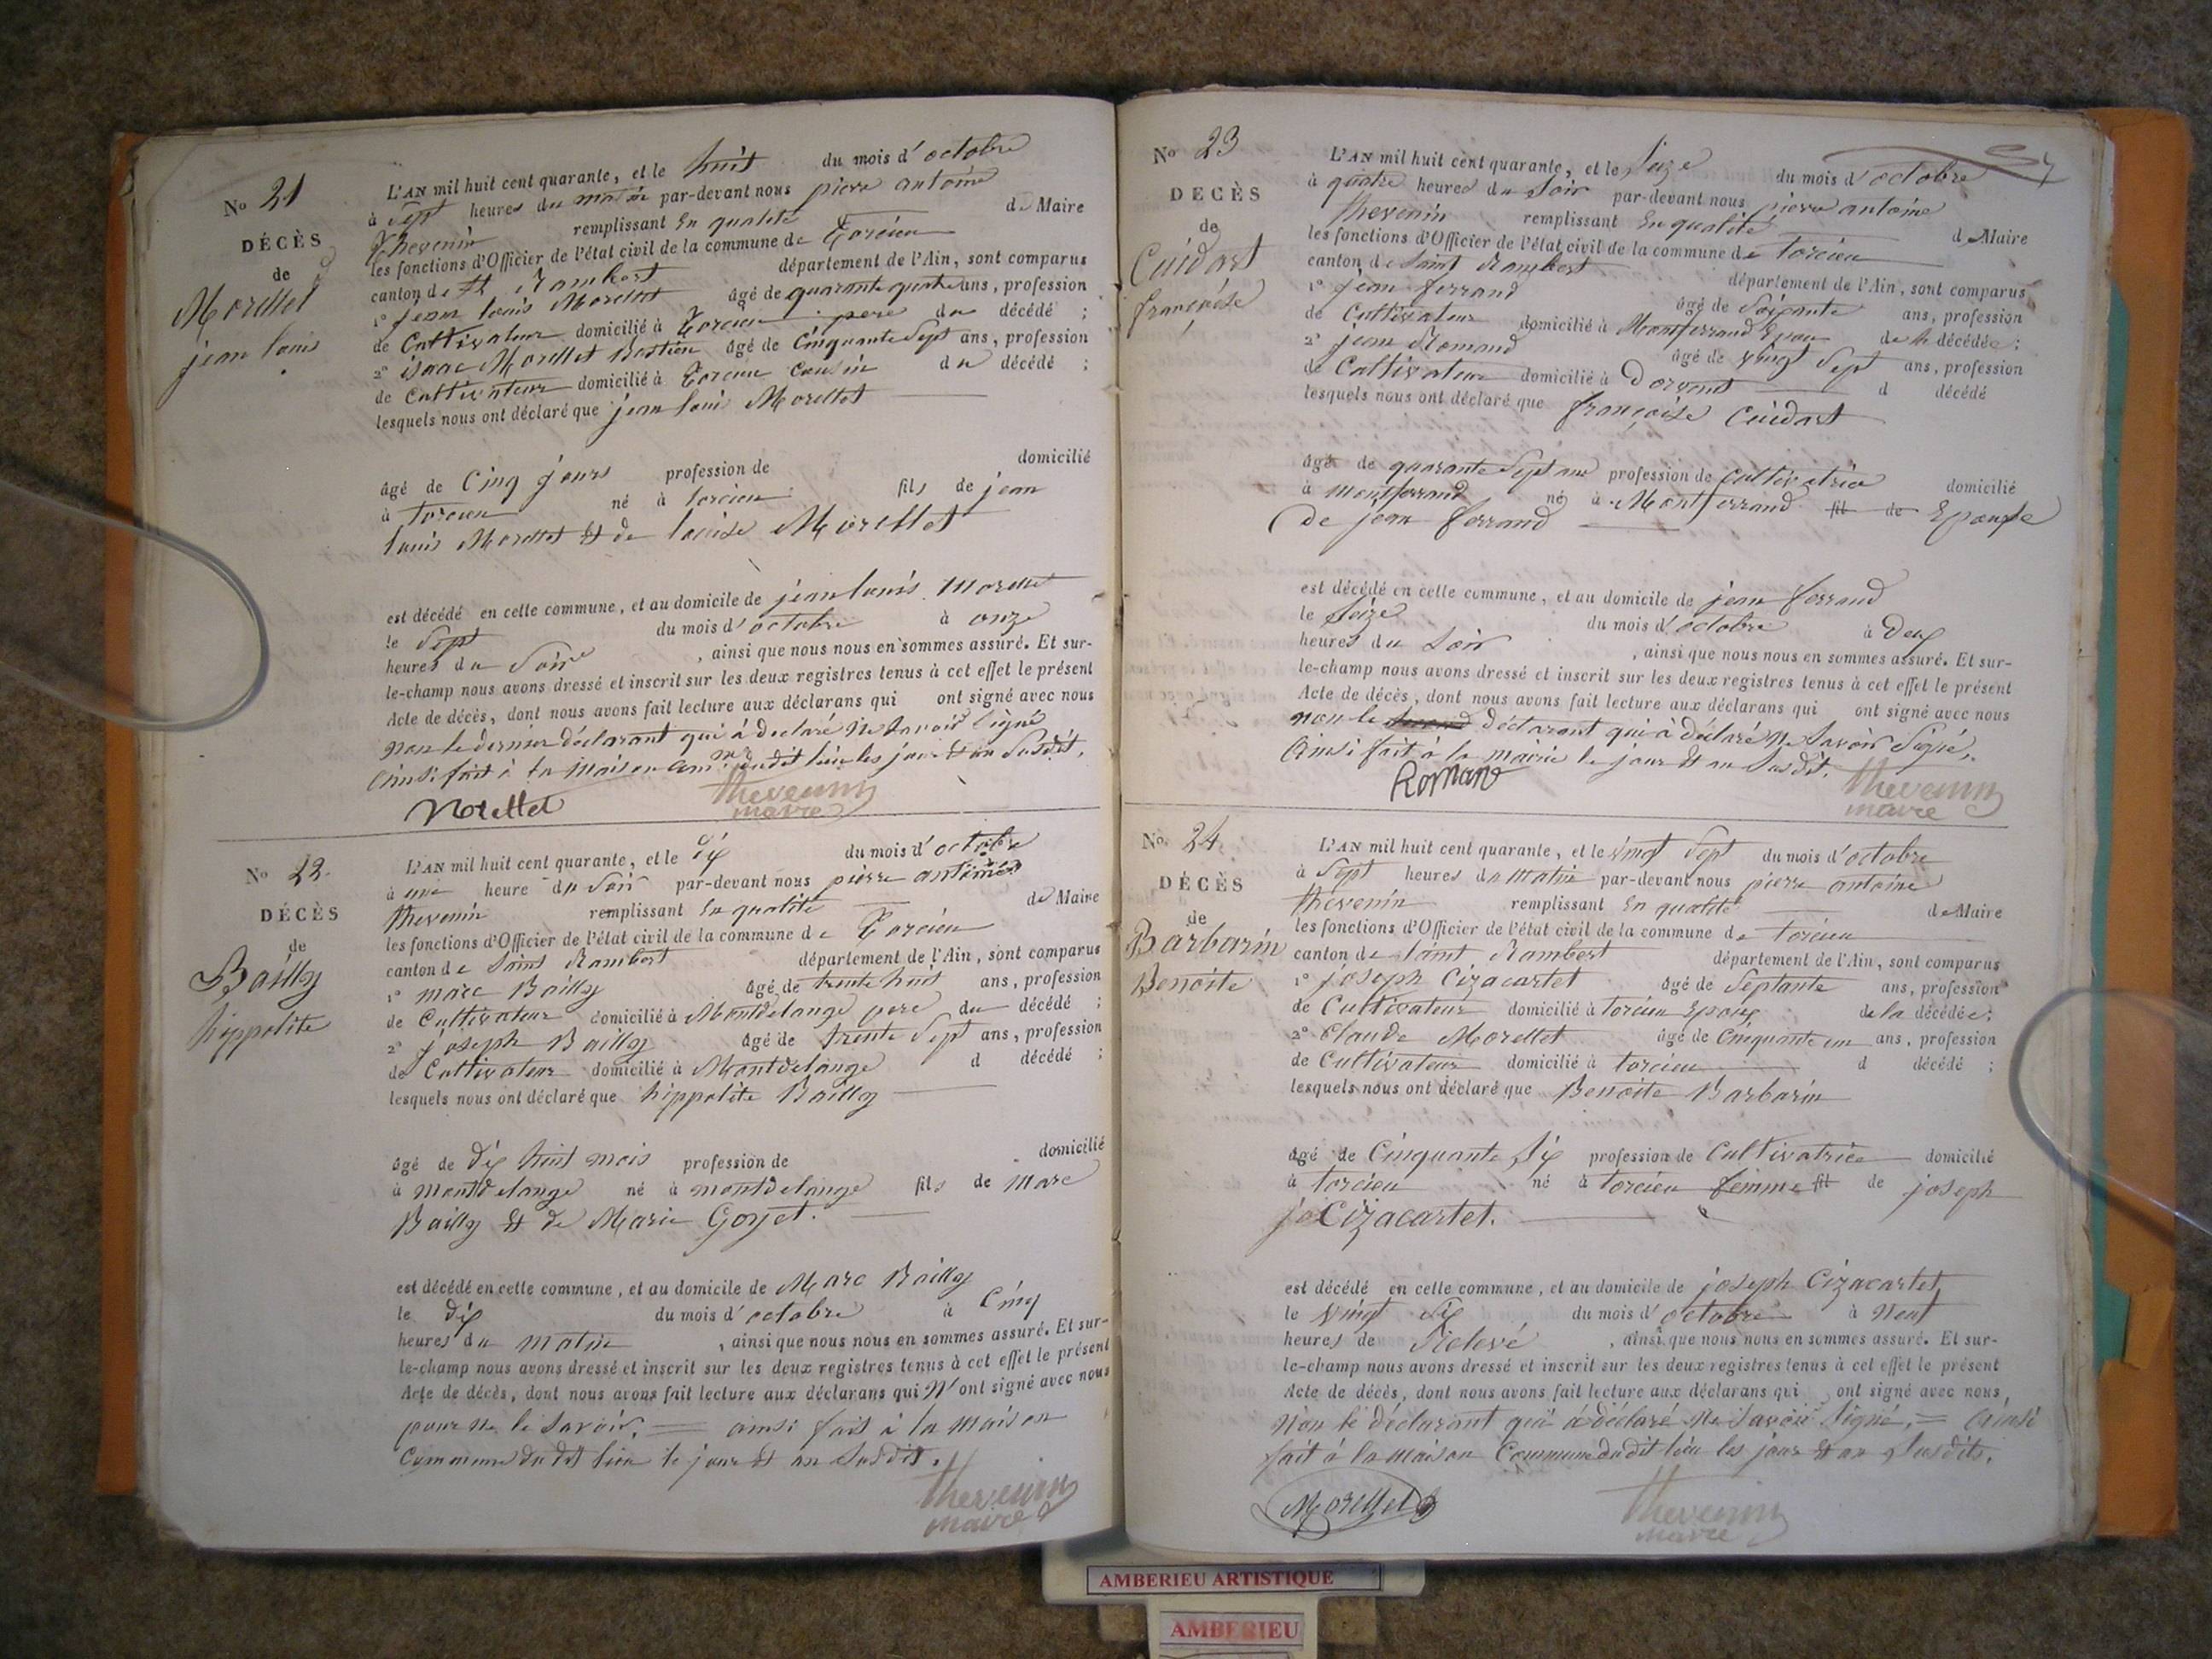 No 21
DÉCÈS
de
Morellet
jean louis
L'AN mil huit cent quarante, et le huit du mois d'octobre
à Sept heures du matin par-devant nous pierre antoine
Thevenin remplissant En qualité de Maire
les fonctions d'Officier de l'état civil de la commune de Torcieu
canton de St Rambert département de l'Ain, sont comparus
1o jean louis Morellet âgé de quarante quatre ans, profession
de Cultivateur domicilié à Torcieu pere du décédé ;
2o isaac Morellet Bastien âgé de Cinquante Sept ans, profession
de Cultivateur domicilié à Torcieu Cousin du décédé ;
lesquels nous ont déclaré que jean louis Morellet
âgé de Cinq jours profession de domicilié
à torcieu né à torcieu fils de jean
louis Morellet et de louise Morellet
est décédé en cette commune, et au domicile de jean louis Morellet
le Sept du mois d'octobre à onze
heures du Soir , ainsi que nous nous en sommes assuré. Et sur-
le-champ nous avons dressé et inscrit sur les deux registres tenus à cet effet le présent
Acte de décès, dont nous avons fait lecture aux déclarans qui ont signé avec nous
non le dernier déclarant qui à déclaré ne Savoir Signé
Ainsi fait à la Maison Comne dudit lieu les jour et an Susdit.
Morellet Thevenin
maire
No 22
DÉCÈS
de
Bailly
hippolite
L'AN mil huit cent quarante, et le dix du mois d'octobre
à une heure du Soir par-devant nous pierre antoine
thevenin remplissant En qualité de Maire
les fonctions d'Officier de l'état civil de la commune de Torcieu
canton de Saint Rambert département de l'Ain, sont comparus
1o marc Bailly âgé de trente huit ans, profession
de Cultivateur domicilié à Montdelange pere du décédé ;
2o joseph Bailly âgé de trente Sept ans, profession
de Cultivateur domicilié à Montdelange d décédé ;
lesquels nous ont déclaré que hippolite Bailly
âgé de dix huit mois profession de domicilié
à Montdelange né à montdelange fils de Marc
Bailly et de Marie Gorjet.
est décédé en cette commune, et au domicile de Marc Bailly
le dix du mois d'octobre à Cinq
heures du matin , ainsi que nous nous en sommes assuré. Et sur-
le-champ nous avons dressé et inscrit sur les deux registres tenus à cet effet le présent
Acte de décès, dont nous avons fait lecture aux déclarans qui N'ont signé avec nous
pour ne le Savoir. = ainsi fait à la Maison
Commune dudit lieu le jour et an Susdit.
Thevenin
maire
No 23
DÉCÈS
de
Cuidart
françoise
L'AN mil huit cent quarante, et le Seize du mois d'octobre
à quatre heures du Soir par-devant nous pierre antoine
thevenin remplissant En qualité de Maire
les fonctions d'Officier de l'état civil de la commune de torcieu
canton de Saint Rambert département de l'Ain, sont comparus
1o jean ferrand âgé de Soixante ans, profession
de Cultivateur domicilié à Montferrand Epoux de la décédée ;
2o jean Romand âgé de vingt Sept ans, profession
de Cultivateur domicilié à Dorvent d décédé
lesquels nous ont déclaré que françoise Cuidart
âgé de quarante Sept ans profession de Cultivatrice domicilié
à montferrand né à Montferrand fil de Epouse
de jean ferrand
est décédé en cette commune, et au domicile de jean ferrand
le Seize du mois d'octobre à Deux
heures du Soir , ainsi que nous nous en sommes assuré. Et sur-
le-champ nous avons dressé et inscrit sur les deux registres tenus à cet effet le présent
Acte de décès, dont nous avons fait lecture aux déclarans qui ont signé avec nous
non le second déclarant qui à déclaré ne Savoir Signé.
Ainsi fait à la mairie le jour et an Susdit.
Romand Thevenin
maire
No 24
DÉCÈS
de
Barbarin
Benoite
L'AN mil huit cent quarante, et le vingt Sept du mois d'octobre
à Sept heures du matin par-devant nous pierre antoine
thevenin remplissant En qualité de Maire
les fonctions d'Officier de l'état civil de la commune de torcieu
canton de Saint Rambert département de l'Ain, sont comparus
1o joseph Cizacartet âgé de Septante ans, profession
de Cultivateur domicilié à torcieu Epoux de la décédée ;
2o Claude Morellet âgé de Cinquante un ans, profession
de Cultivateur domicilié à torcieu d décédé ;
lesquels nous ont déclaré que Benoite Barbarin
âgé de Cinquante Six profession de Cultivatrice domicilié
à torcieu né à torcieu femme fil de joseph
jo Cizacartet.
est décédé en cette commune, et au domicile de joseph Cizacartet
le vingt Six du mois d'octobre à Neuf
heures de Relevé , ainsi que nous nous en sommes assuré. Et sur-
le-champ nous avons dressé et inscrit sur les deux registres tenus à cet effet le présent
Acte de décès, dont nous avons fait lecture aux déclarans qui ont signé avec nous,
Non le déclarant qui à déclaré ne Savoir Signé. = Ainsi
fait à la maison Commune dudit lieu les jour et an Susdits.
Morellet Thevenin
maire
AMBERIEU ARTISTIQUE
AMBERIEU